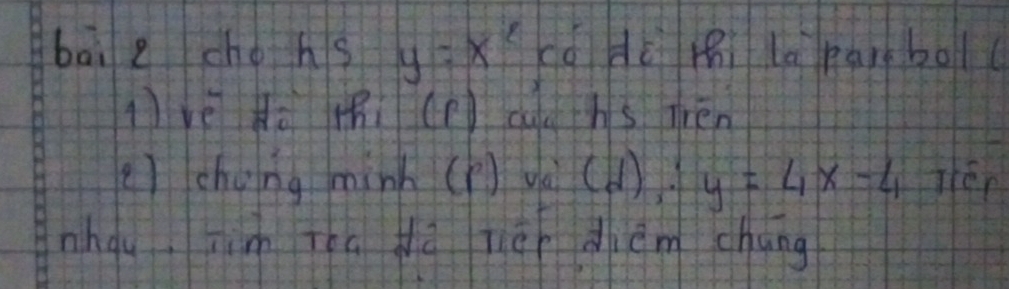 bài 2 cho hs y = x² có đồ thị là parabol (
1) vẽ đồ thị (P) của hs trên
2) chứng minh (P) và (d): y = 4x - 4 tiếp
nhau. Tìm tọa độ tiếp điểm chung.